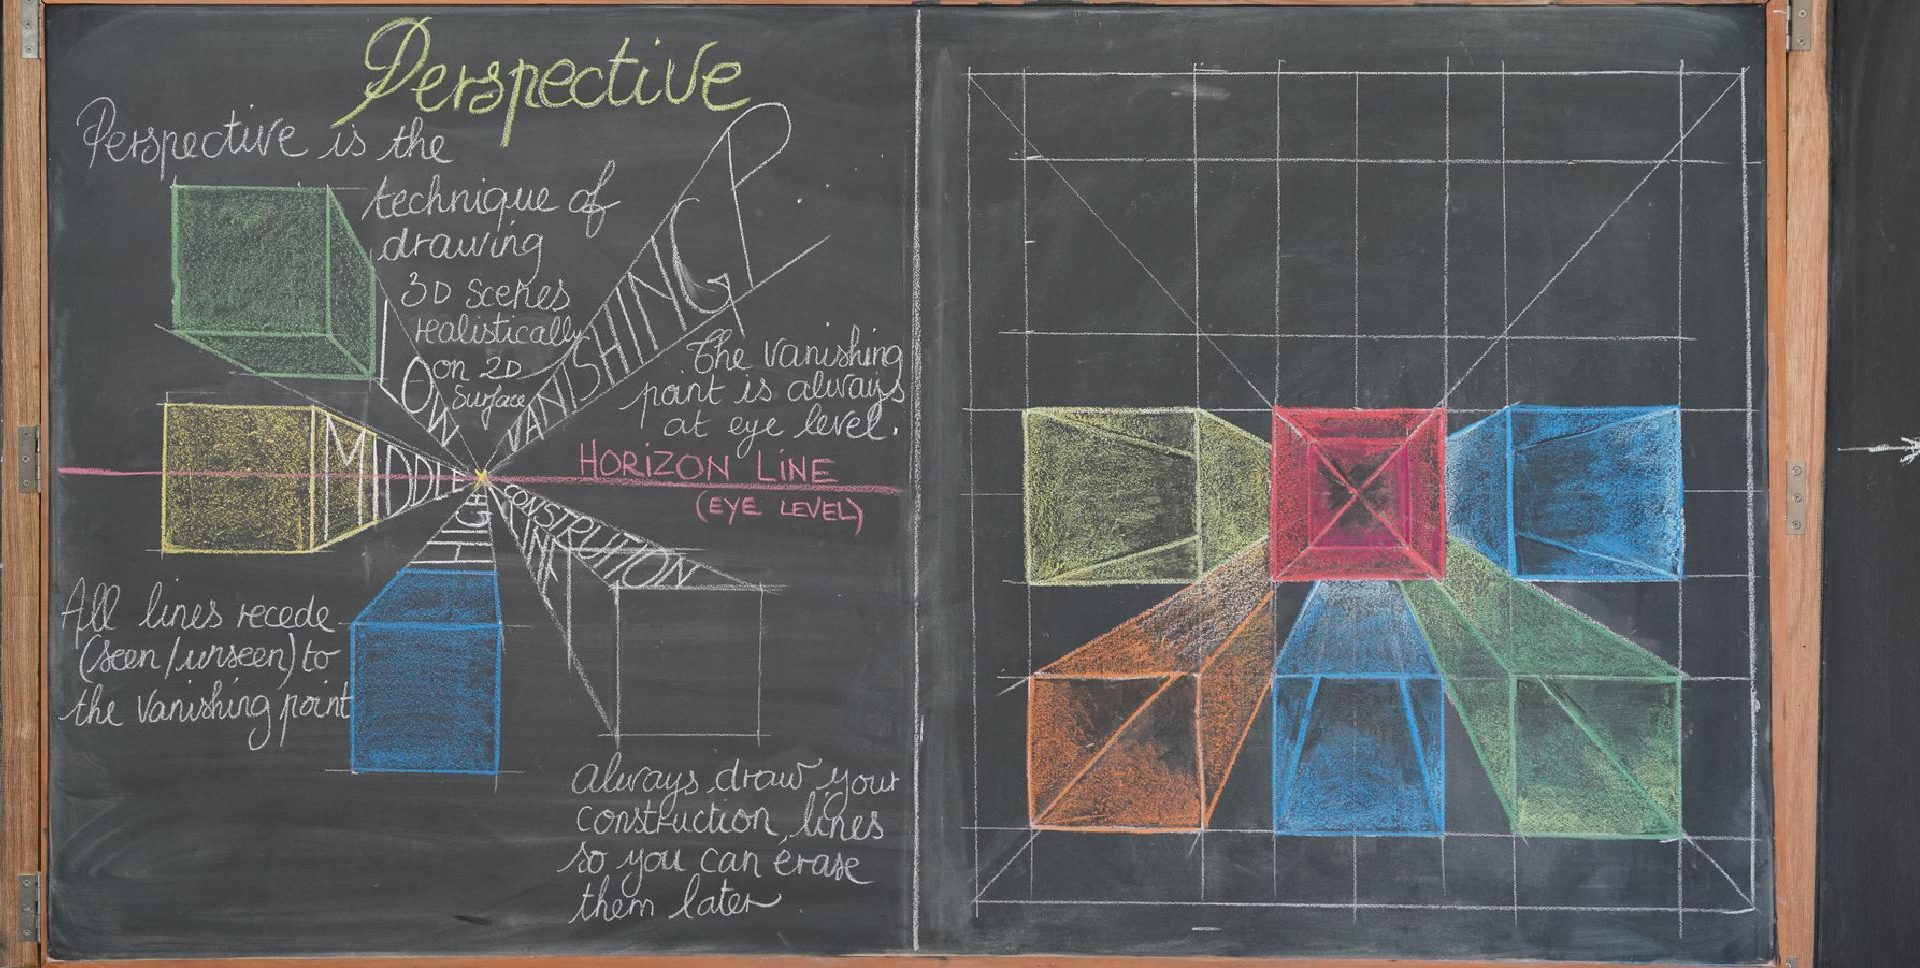 Perspective
Perspective is the
technique of
drawing
3D Scenes
realistically
on 2D
Surface
LOW
VANISHING P
The vanishing
point is always
at eye level.
MIDDLE
HORIZON LINE
(EYE LEVEL)
HIGH
CONSTRUTION
LINE
All lines recede
(seen/unseen) to
the vanishing point
always draw your
construction lines
so you can erase
them later